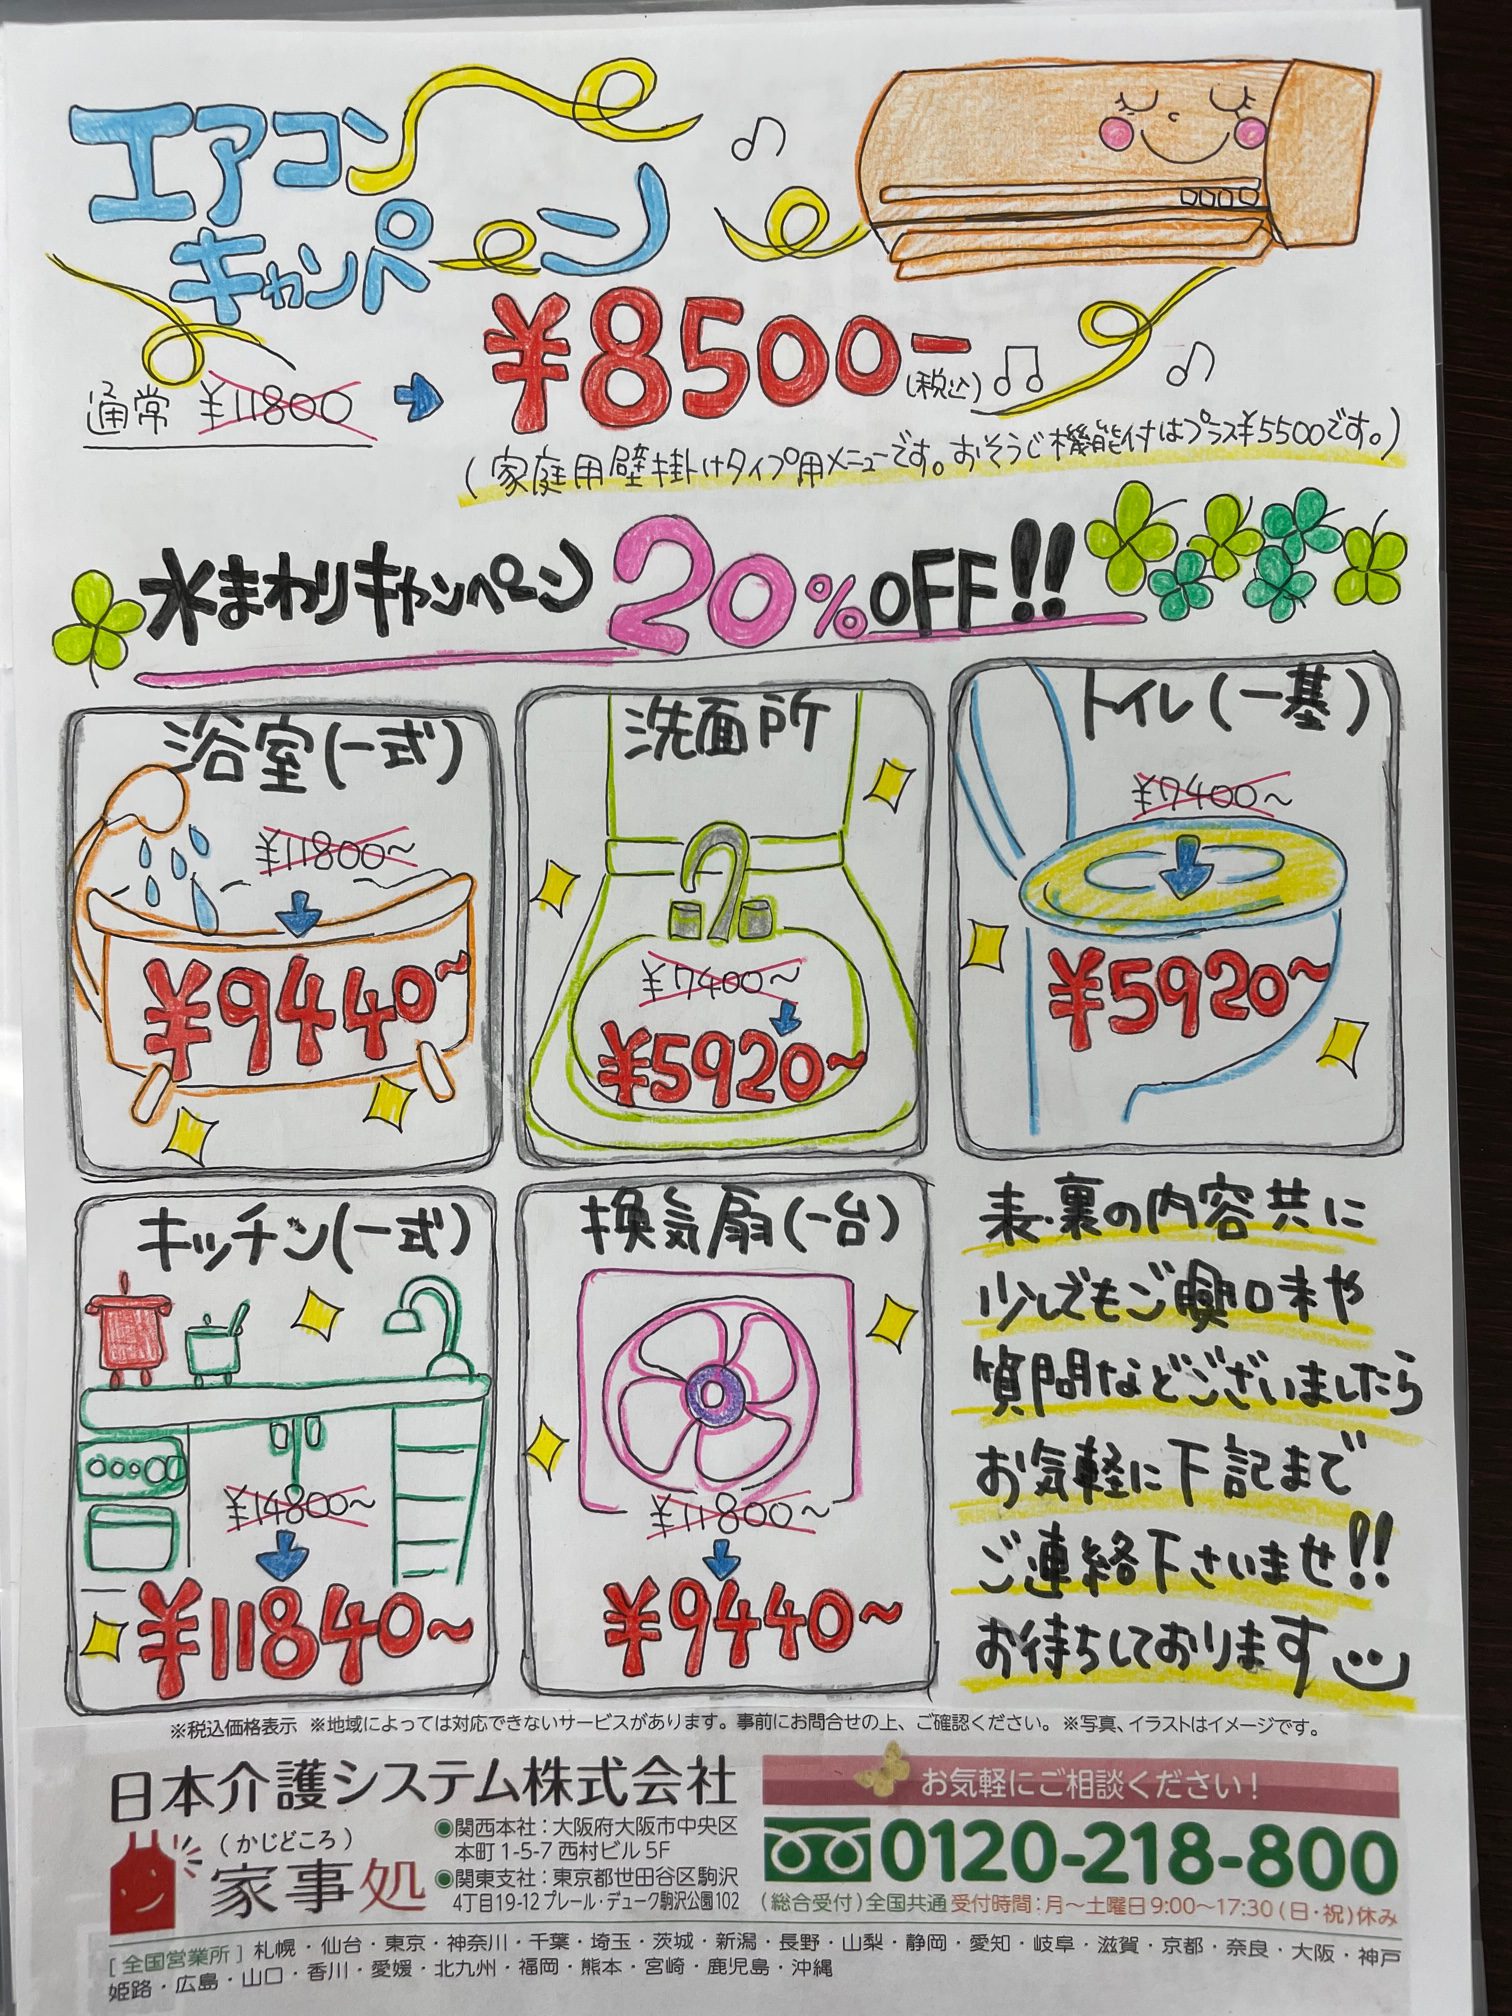 エアコン
キャンペーン
通常 ¥11800
¥8500ー(税込)
(家庭用壁掛けタイプ用メニューです。おそうじ機能付はプラス¥5500です。)
水まわりキャンペーン 20%OFF!!
浴室(一式)
¥11800〜
¥9440〜
洗面所
¥7400〜
¥5920〜
トイレ(一基)
¥7400〜
¥5920〜
キッチン(一式)
¥14800〜
¥11840〜
換気扇(一台)
¥11800〜
¥9440〜
表・裏の内容共に
少しでもご興味や
質問などございましたら
お気軽に下記まで
ご連絡下さいませ!!
お待ちしております
※税込価格表示 ※地域によっては対応できないサービスがあります。事前にお問合せの上、ご確認ください。 ※写真、イラストはイメージです。
日本介護システム株式会社
(かじどころ)
家事処
●関西本社:大阪府大阪市中央区
本町 1-5-7 西村ビル 5F
●関東支社:東京都世田谷区駒沢
4丁目19-12 プレール・デューク駒沢公園102
お気軽にご相談ください!
0120-218-800
(総合受付)全国共通 受付時間:月〜土曜日 9:00〜17:30 (日・祝)休み
[全国営業所] 札幌・仙台・東京・神奈川・千葉・埼玉・茨城・新潟・長野・山梨・静岡・愛知・岐阜・滋賀・京都・奈良・大阪・神戸
姫路・広島・山口・香川・愛媛・北九州・福岡・熊本・宮崎・鹿児島・沖縄